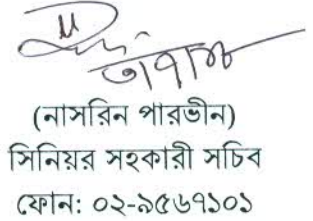 (নাসরিন পারভীন)
সিনিয়র সহকারী সচিব
ফোন: ০২-৯৫৬৭১০১